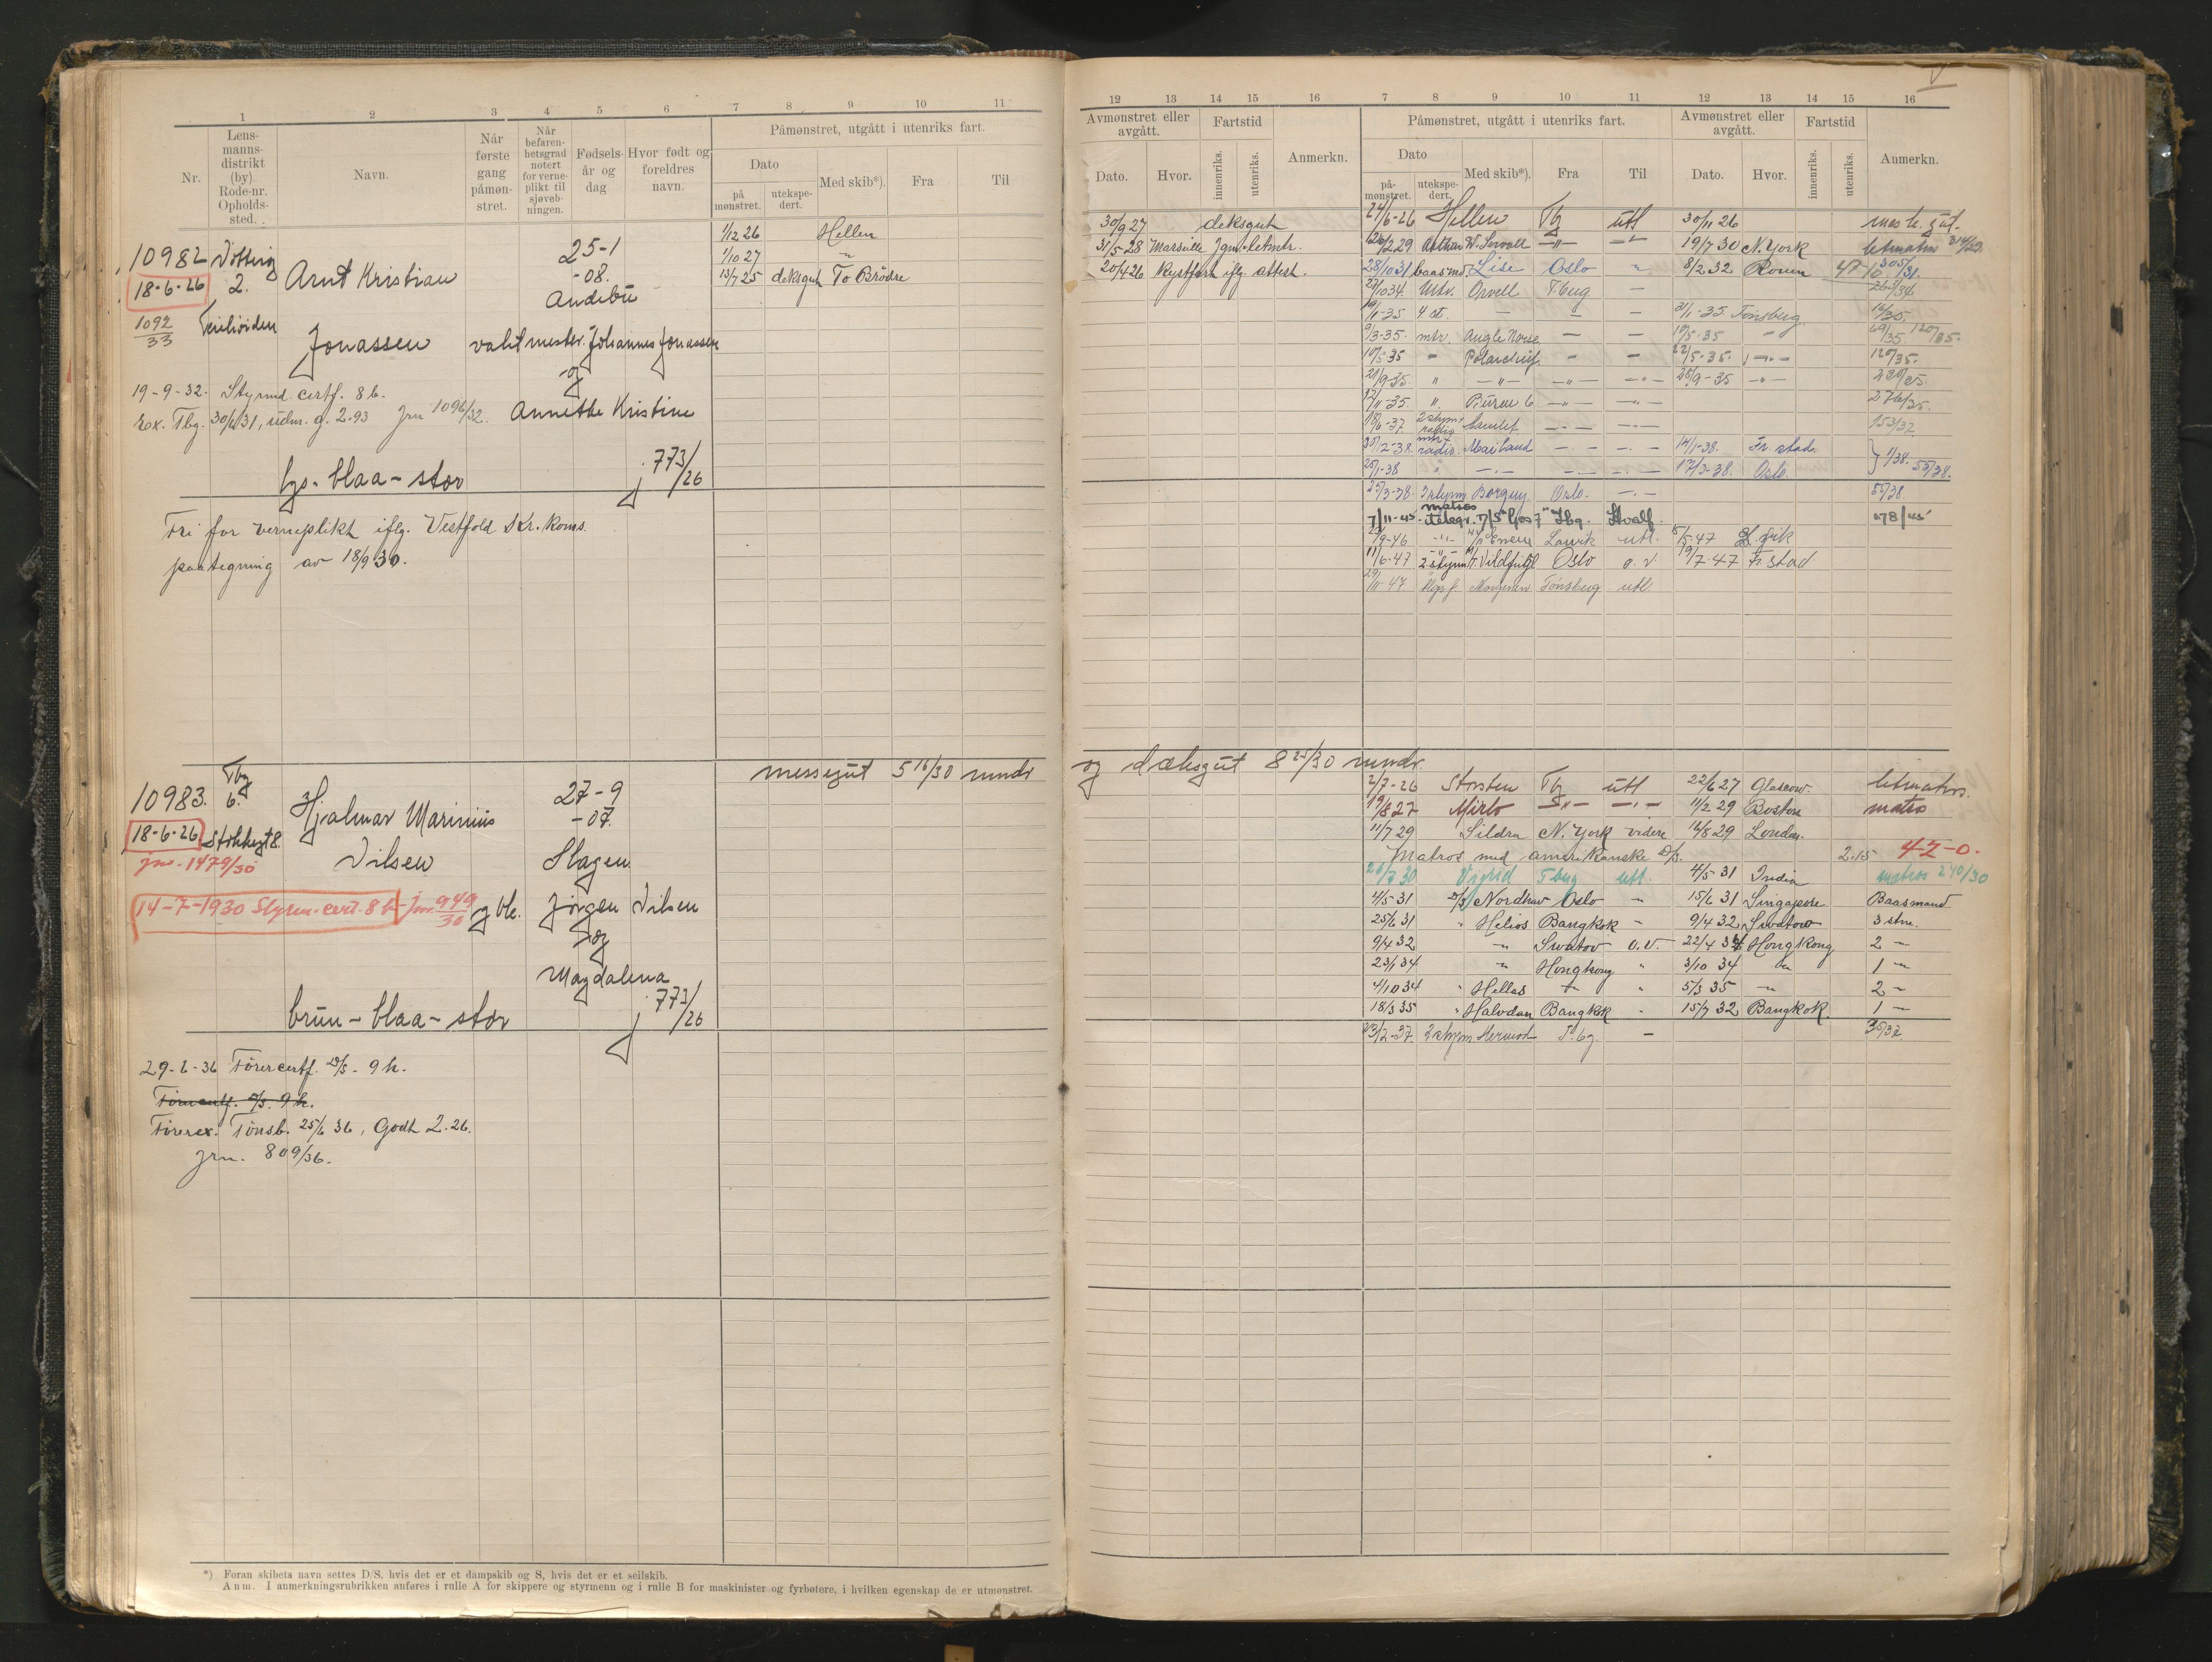 1 2 3 4 5 6 7 8 9 10 11
Nr.
Lens-
manns-
distrikt
(by)
Rode-nr.
Opholds-
sted.
Navn.
Når
første
gang
påmøn-
stret.
Når
befaren-
hetsgrad
notert
for verne-
plikt til
sjøveb-
ningen.
Fødsels-
år og
dag
Hvor født og
foreldres
navn.
Påmønstret, utgått i utenriks fart.
Dato
på
mønstret.
utekspe-
dert.
Med skib*).
Fra
Til
1/12 26 Hellen
1/10 27 "
13/7 25 deksgut To Brødre
10982
18-6-26
1092/33
2.
Arnt Kristian
Jonassen
25-1
-08.
Andebu
vaktmester Johannes Jonassen
og
Annette Kristine
19-9-32. Styrmd. certf. 8 b.
Ex. Tbg. 30/6 31, udm. g. 2.93 jrn 1092/32.
lys-blaa-stor
j. 773/26
Fri for verneplikt iflg. Vestfold Kr. koms.
paategning av 18/9 30.
10983.
Tbg
6.
18-6-26
jnr. 1479/30
Hjalmar Marinius
Nilsen
27-9
-07.
Slagen
messegut 5 16/30 mndr
14-7-1930 Styrm. cert. 8 b jnr. 949/30
Jørgen Nilsen
og
Magdalena
brun-blaa-stor
j. 773/26
29-6-36 Førercertf. D/S. 9 h.
Førercertf. D/S. 9 h.
Førerex. Tønsb. 25/6 36, Godt 2.26.
jrn. 809/36.
*) Foran skibets navn settes D/S, hvis det er et dampskib og S, hvis det er et seilskib.
Anm. I anmerkningsrubrikken anføres i rulle A for skippere og styrmenn og i rulle B for maskinister og fyrbøtere, i hvilken egenskap de er utmønstret.
12 13 14 15 16 7 8 9 10 11 12 13 14 15 16
Avmønstret eller
avgått.
Dato.
Hvor.
Fartstid
innenriks.
utenriks.
Anmerkn.
Påmønstret, utgått i utenriks fart.
Dato
på-
mønstret.
utekspe-
dert.
Med skib*).
Fra
Til
Avmønstret eller
avgått.
Dato.
Hvor.
Fartstid
innenriks.
utenriks.
Anmerkn.
30/9 27 deksgut
31/5-28 Marseille Jgm. letmtr.
20/4 26 Kystfart iflg. attest.
24/6-26 Hellen Tbg utl 30/11 26
26/2 29 Arthur W. Sewall -"- -"- 19/7 30 N. York letmatros
28/10 31 baasmd Lise Oslo " 8/2.32. Rouen
22/10 34. Mtr. Orwell T.bug -
19/1-35 4 st. - - - 31/1-35 Tønsberg 16/35.
9/3-35. mtr. Anglo Norse - - 10/5-35 "
10/5 35 " Polarchief - - 22/5-35. -"- 120/35.
21/9-35. " -"- -"- -"- 25/9-35 -"-
12/11-35. " -"- -"- 276/35.
2 styrm radio -"- -"- 153/37
mtr radio. -"- -"- 14/1-38. Fr. stad.
25/1-38 " -"- -"- -"- 17/3-38. Oslo. 1/38. 55/38.
25/3-38. 3 styrm Borgny Oslo. -"- 55/38.
matros
7/11-45. telegr. Tbg. Hvalf. 78/45
23/9-46 -"- Larvik utl. 8/5-47
11/6-47 2 styrm Vildfugl Oslo o. v. 19/7-47 Fr. stad
29/11-47 Tønsberg utl.
og dæksgut 8 25/30 mndr.
2/7-26 Storsten Tbg utl 22/6 27 Glascow. letmatros.
19/8 27 Mirlo -"- -"- 11/2 29 Boston matros
11/7 29 Sildra N. York videre 16/8 29 London.
Matros med amerikanske D/S. 2.15 42-0.
26/7 30 Vigrid Tbug utl. 4/5 31 India matros 240/30
4/5-31 D/S Nordhav Oslo " 15/6 31 Singapore Baasmand
25/6 31 " Helios Bangkok " 9/4 32 Swatow 3 stm.
9/4 32 " Swatov o.v. 22/4 34 Hongkong 2 -"
23/1 34 " Hongkong " 3/10 34 do 1 -"
4/10 34 " Hellas " " 5/3 35 -"- 2 -
18/3 35 " Halvdan Bangkok - 15/7 32 Bangkok. 1 -
23/2-37. 2 styrm Hermod T.bg. - 35/37